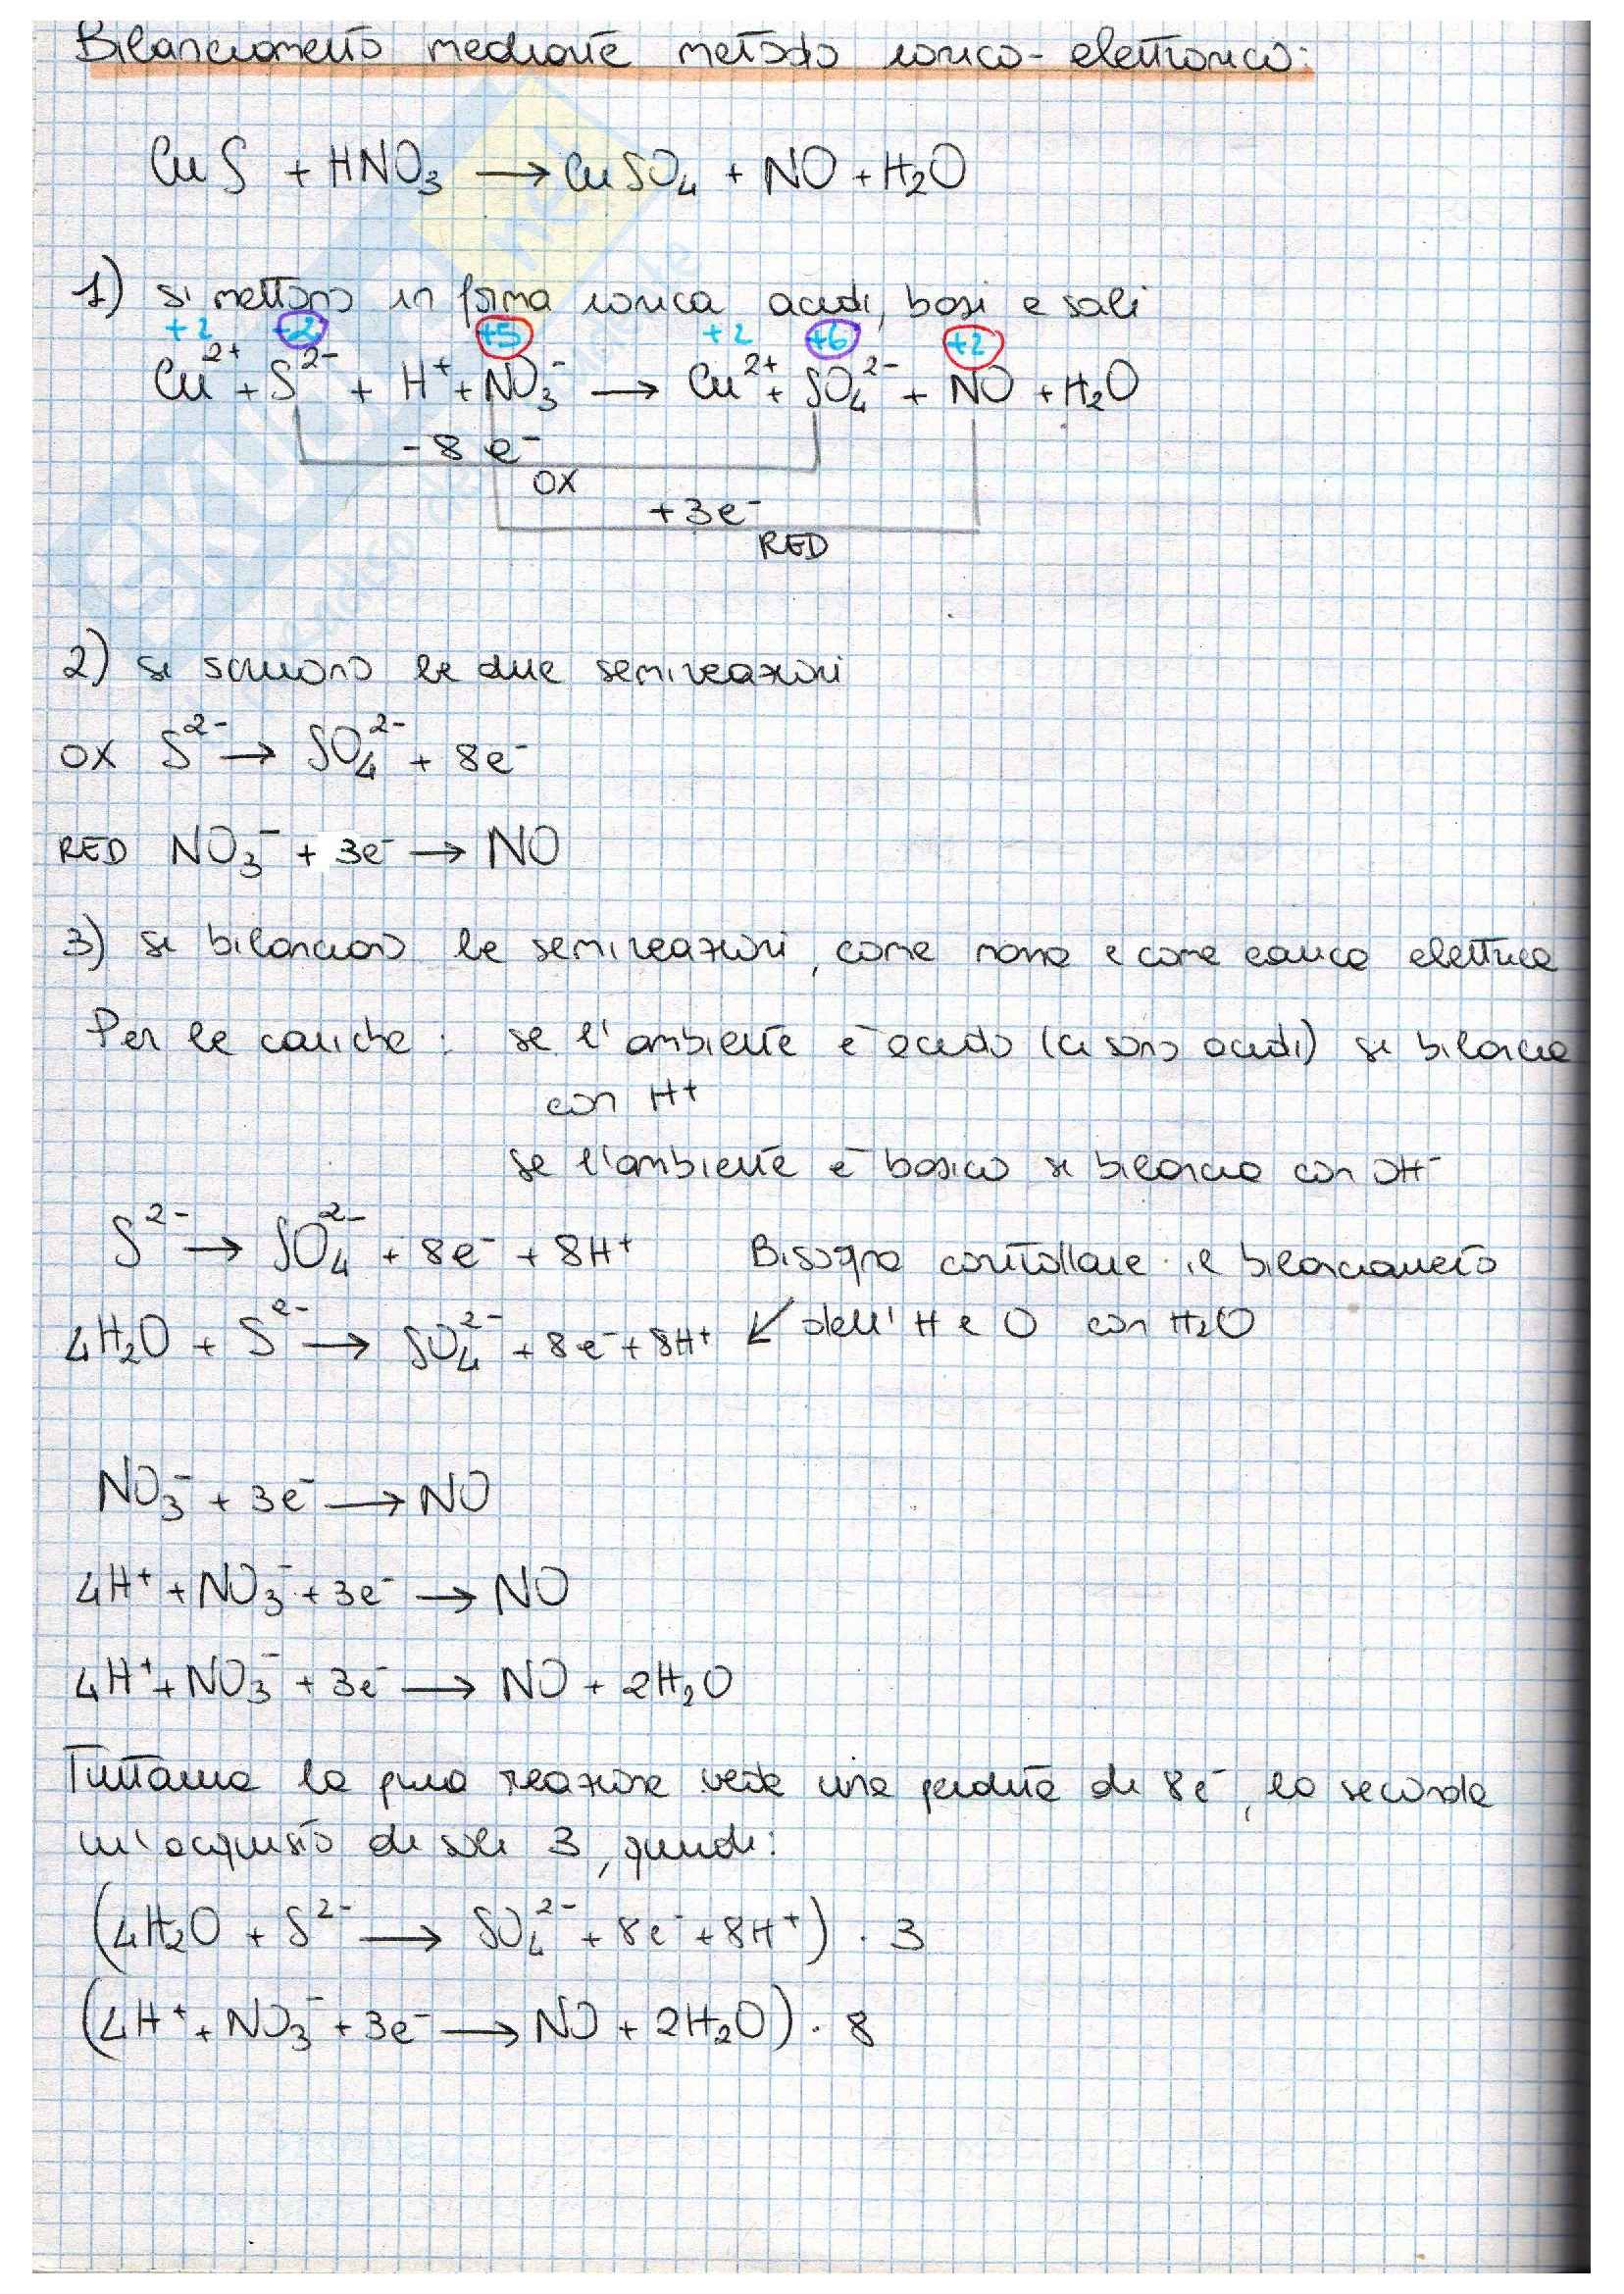 Bilanciamento mediante metodo ionico-elettronico:
CuS + HNO₃ → CuSO₄ + NO + H₂O
1) si mettono in forma ionica acidi, basi e sali
+2 -2 +5 +2 +6 +2
Cu²⁺ + S²⁻ + H⁺ + NO₃⁻ → Cu²⁺ + SO₄²⁻ + NO + H₂O
-8 e⁻
OX
+3e⁻
RED
2) si scrivono le due semireazioni
OX S²⁻ → SO₄²⁻ + 8e⁻
RED NO₃⁻ + 3e⁻ → NO
3) si bilanciano le semireazioni, come massa e come carica elettrica
Per le cariche: se l'ambiente è acido (ci sono acidi) si bilancia
con H⁺
se l'ambiente è basico si bilancia con OH⁻
S²⁻ → SO₄²⁻ + 8e⁻ + 8H⁺ Bisogna controllare il bilanciamento
4H₂O + S²⁻ → SO₄²⁻ + 8e⁻ + 8H⁺ ↙ dell'H e O con H₂O
NO₃⁻ + 3e⁻ → NO
4H⁺ + NO₃⁻ + 3e⁻ → NO
4H⁺ + NO₃⁻ + 3e⁻ → NO + 2H₂O
Tuttavia la prima reazione vede una perdita di 8e⁻, la seconda
un'acquisto di soli 3, quindi:
(4H₂O + S²⁻ → SO₄²⁻ + 8e⁻ + 8H⁺) · 3
(4H⁺ + NO₃⁻ + 3e⁻ → NO + 2H₂O) · 8